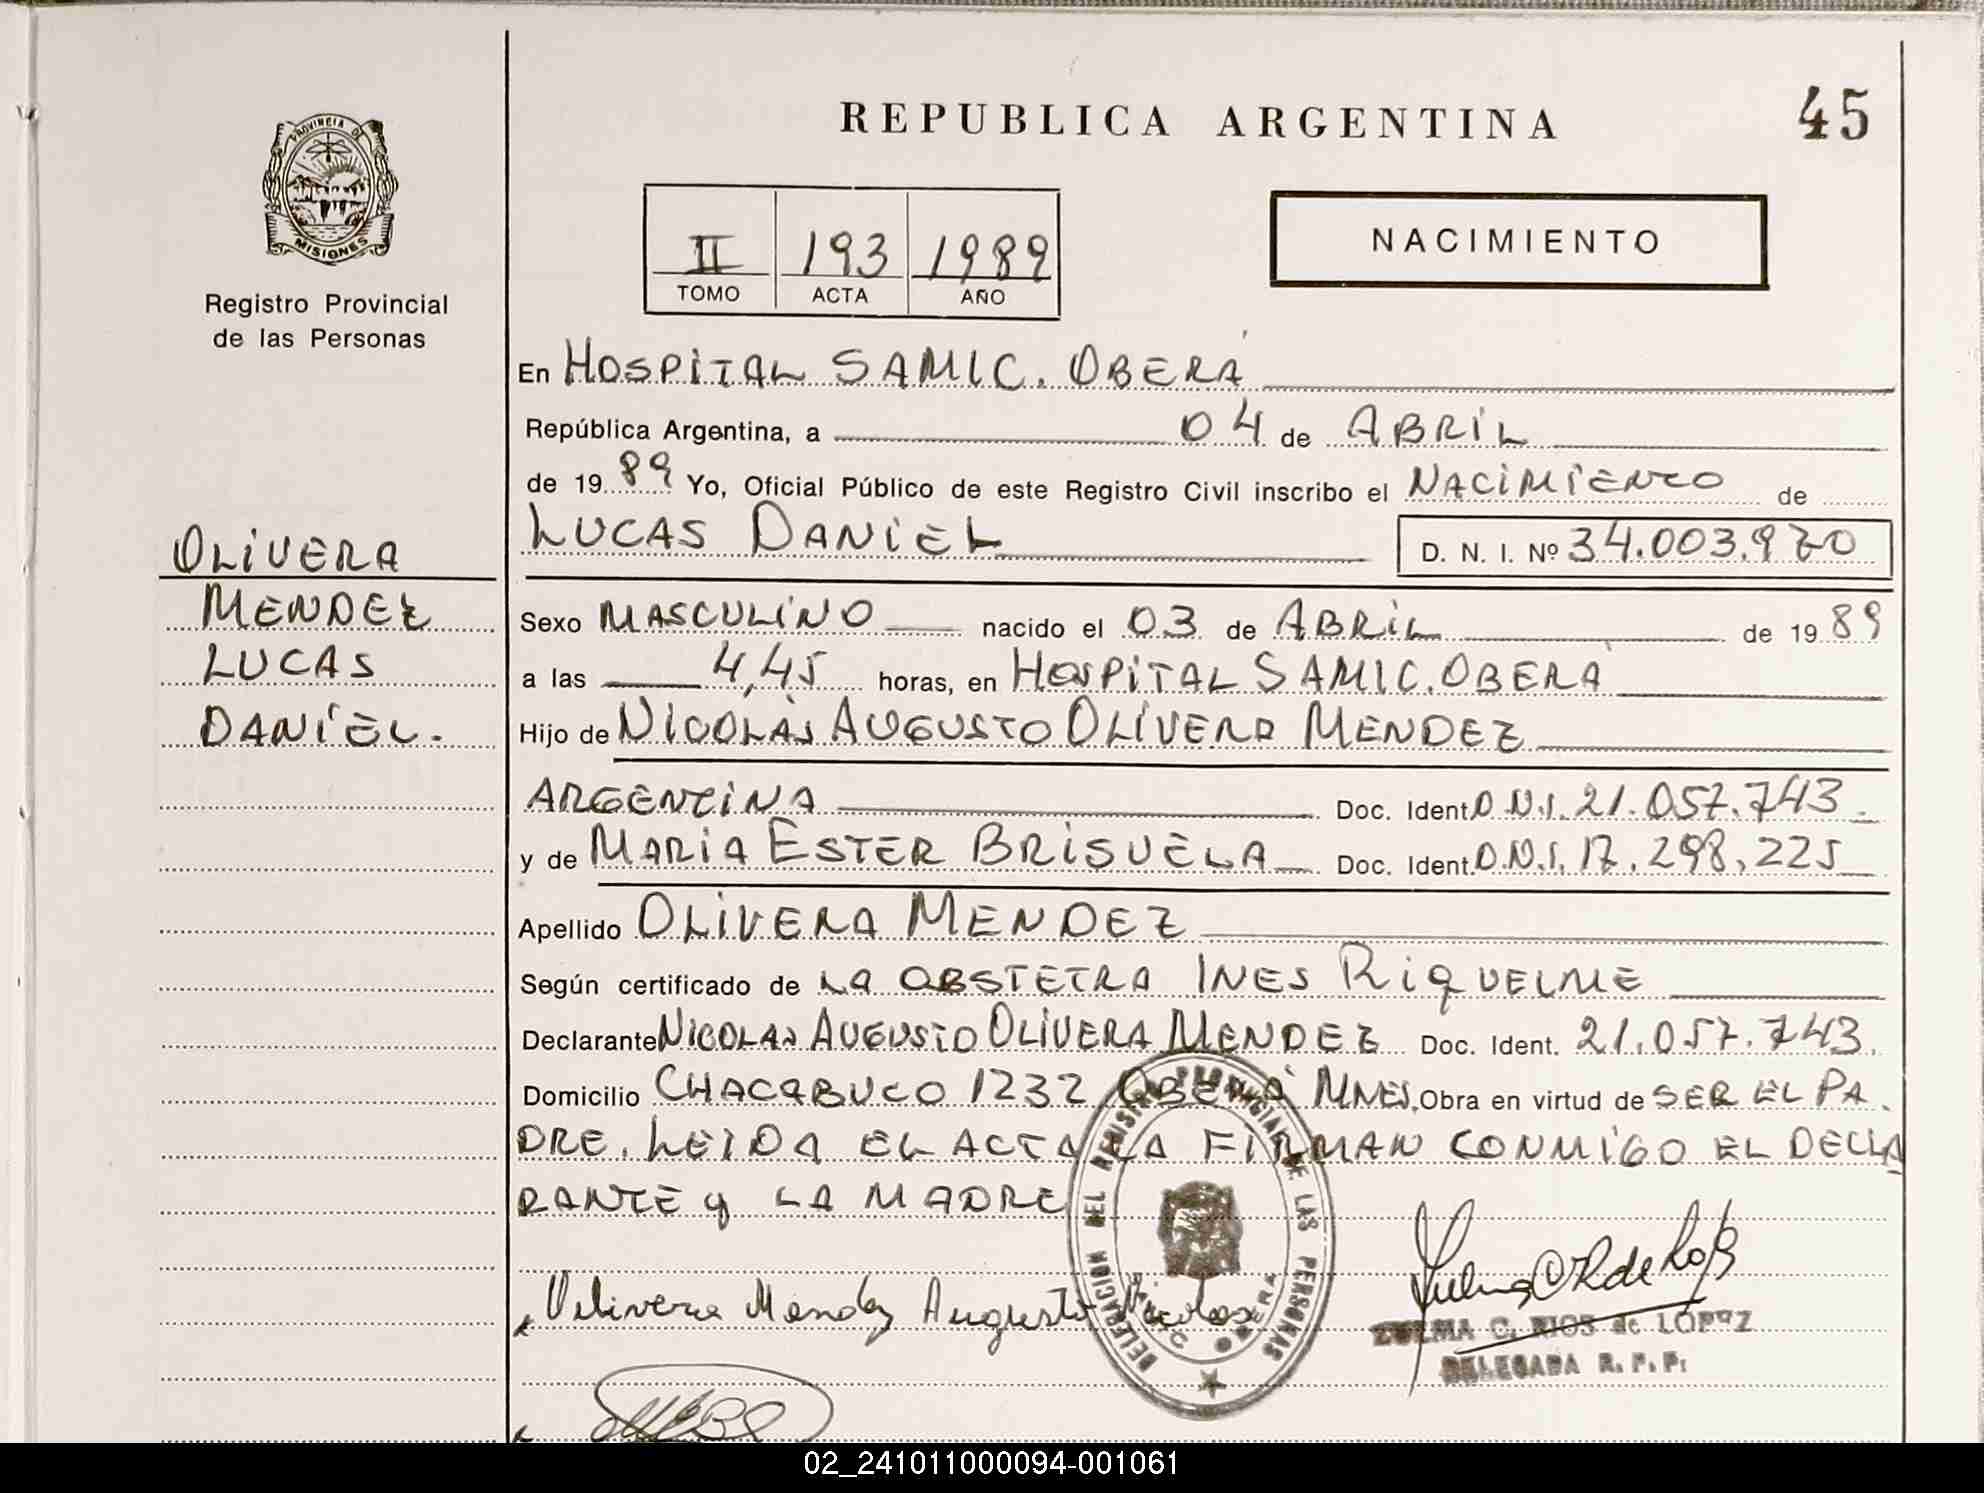 REPUBLICA ARGENTINA
45
PROVINCIA DE
MISIONES
Registro Provincial
de las Personas
II 193 1989
TOMO ACTA AÑO
NACIMIENTO
En HOSPITAL SAMIC. OBERÁ
República Argentina, a 04 de ABRIL
de 1989 Yo, Oficial Público de este Registro Civil inscribo el NACIMIENTO de
LUCAS DANIEL D. N. I. Nº 34.003.970
OLIVERA
MENDEZ
LUCAS
DANIEL.
Sexo MASCULINO nacido el 03 de ABRIL de 1989
a las 4,45 horas, en HOSPITAL SAMIC. OBERÁ
Hijo de NICOLÁS AUGUSTO OLIVERA MENDEZ
ARGENTINA Doc. Ident. D.N.I. 21.057.743
y de MARIA ESTER BRISUELA Doc. Ident. D.N.I. 17.298,225
Apellido OLIVERA MENDEZ
Según certificado de LA OBSTETRA INES RIQUELME
Declarante NICOLAS AUGUSTO OLIVERA MENDEZ Doc. Ident. 21.057.743.
Domicilio CHACABUCO 1232 OBERÁ MNES. Obra en virtud de SER EL PA
DRE. LEIDA EL ACTA LA FIRMAN CONMIGO EL DECLA
RANTE y LA MADRE
DELEGACION DEL REGISTRO PROVINCIAL DE LAS PERSONAS
SAMIC OBERA
Olivera Mendez Augusto Nicolas
ZULMA C. RIOS de LÓPEZ
DELEGADA R. P. P.
02_241011000094-001061